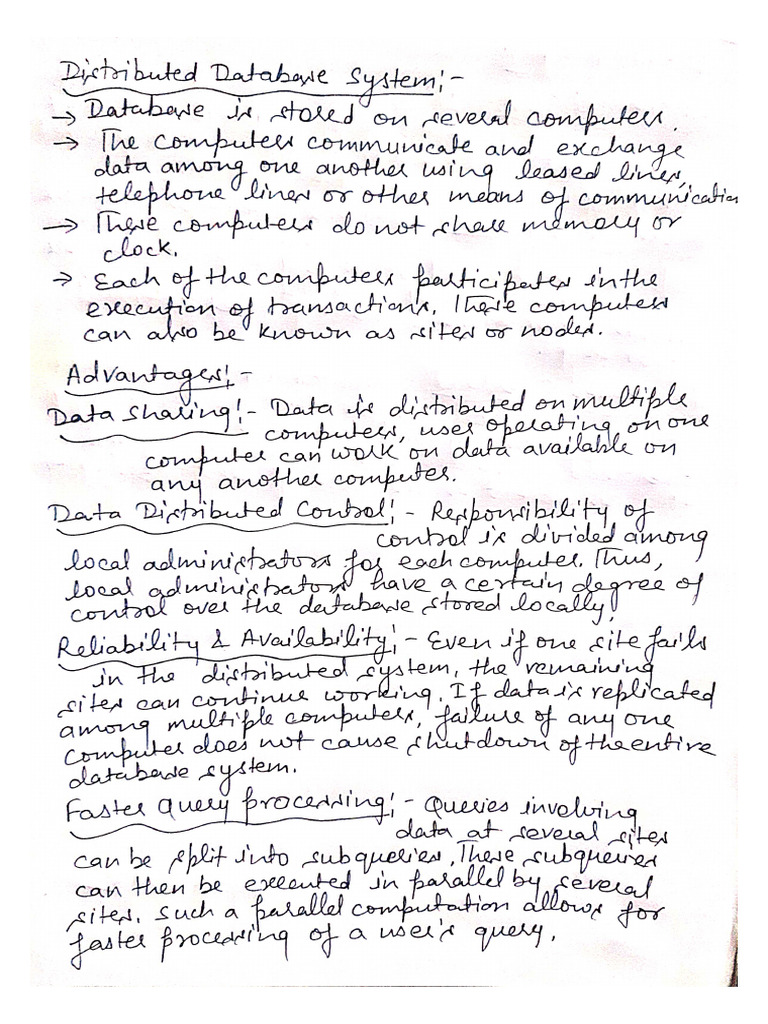 Distributed Database System:-
→ Database is stored on several computers.
→ The computers communicate and exchange
data among one another using leased lines,
telephone lines or other means of communication
→ These computers do not share memory or
clock.
→ Each of the computers participates in the
execution of transactions. These computers
can also be known as sites or nodes.
Advantages:-
Data Sharing:- Data is distributed on multiple
computers, user operating on one
computer can work on data available on
any another computer.
Data Distributed Control:- Responsibility of
control is divided among
local administrators for each computer. Thus,
local administrators have a certain degree of
control over the database stored locally.
Reliability & Availability:- Even if one site fails
in the distributed system, the remaining
sites can continue working. If data is replicated
among multiple computers, failure of any one
computer does not cause shutdown of the entire
database system.
Faster Query processing:- Queries involving
data at several sites
can be split into subqueries. These subqueries
can then be executed in parallel by several
sites. Such a parallel computation allows for
faster processing of a user's query.